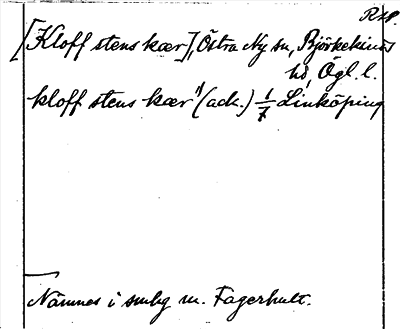 RAP.
[Kloff stens kær], Östra Ny sn, Björkekinds
hd, Ögl. l.
kloff stens kær" (ack.) 1/7 Linköping
Nämnes i smhg m. Fagerhult.